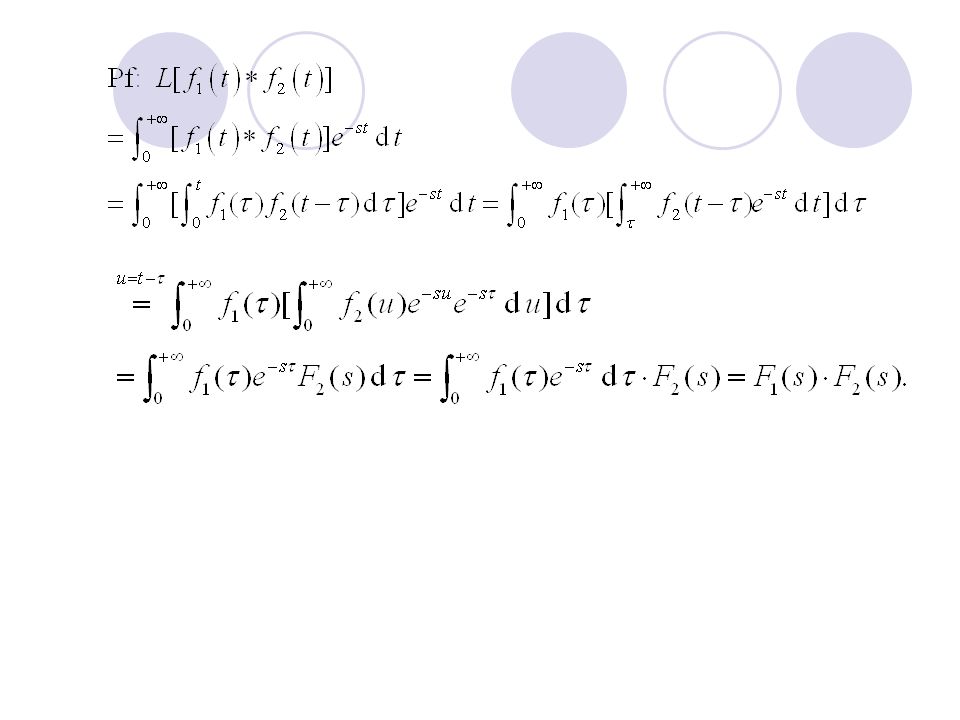 Pf: L[f₁(t)∗f₂(t)]
=∫₀^{+∞}[f₁(t)∗f₂(t)]e^{−st} dt
=∫₀^{+∞}[∫₀^{t}f₁(τ)f₂(t−τ)dτ]e^{−st} dt=∫₀^{+∞}f₁(τ)[∫_{τ}^{+∞}f₂(t−τ)e^{−st} dt]dτ
=^{u=t−τ}∫₀^{+∞}f₁(τ)[∫₀^{+∞}f₂(u)e^{−su}e^{−sτ} du]dτ
=∫₀^{+∞}f₁(τ)e^{−sτ}F₂(s)dτ=∫₀^{+∞}f₁(τ)e^{−sτ} dτ·F₂(s)=F₁(s)·F₂(s).